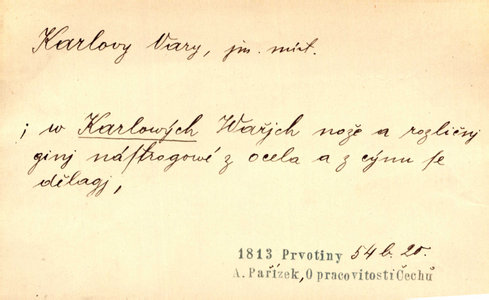 Karlovy Vary, jm. míst.
; w Karlowých Wařjch nože a rozličnj
ginj náſtrogowé z ocela a z cýnu ſe
dělagj,
1813 Prvotiny 54 b. 20.
A. Pařízek, O pracovitosti Čechů